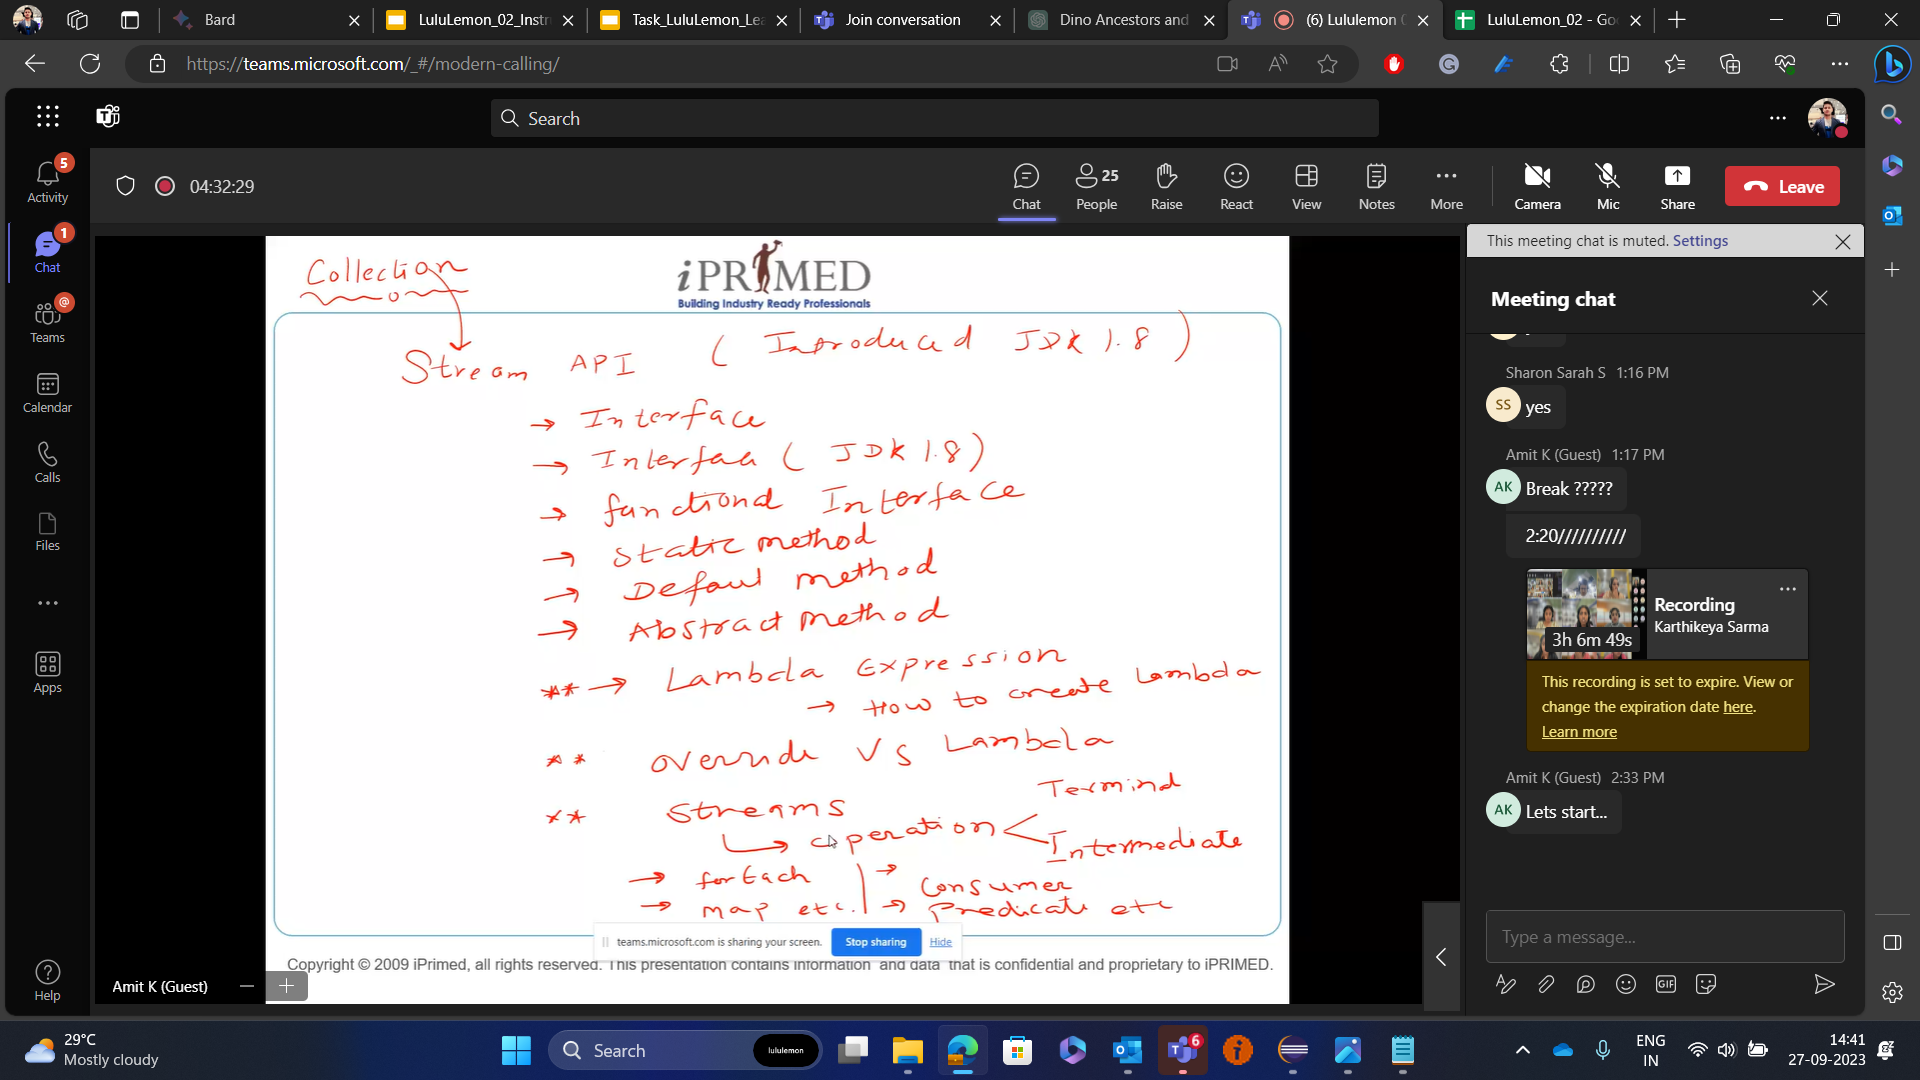 Bard
LuluLemon_02_Instru
Task_LuluLemon_Lea
Join conversation
Dino Ancestors and
(6) Lululemon
LuluLemon_02 - Go
https://teams.microsoft.com/_#/modern-calling/
Search
5
Activity
1
Chat
@
Teams
Calendar
Calls
Files
Apps
Help
04:32:29
Chat
25
People
Raise
React
View
Notes
More
Camera
Mic
Share
Leave
Collection
iPRIMED
Building Industry Ready Professionals
Stream API ( Introduced JDK 1.8 )
→ Interface
→ Interface ( JDK 1.8)
→ functional Interface
→ Static method
→ Defaul method
→ Abstract method
** → Lambda Expression
→ How to create Lambda
** override VS Lambda
** Streams
operation
Terminal
Intermediate
→ forEach
→ map etc.
→ Consumer
→ Predicate etc
teams.microsoft.com is sharing your screen.
Stop sharing
Hide
Copyright © 2009 iPrimed, all rights reserved. This presentation contains information and data that is confidential and proprietary to iPRIMED.
Amit K (Guest)
This meeting chat is muted. Settings
Meeting chat
Sharon Sarah S 1:16 PM
SS
yes
Amit K (Guest) 1:17 PM
AK
Break ?????
2:20//////////
Recording
Karthikeya Sarma
3h 6m 49s
This recording is set to expire. View or
change the expiration date here.
Learn more
Amit K (Guest) 2:33 PM
AK
Lets start...
Type a message...
GIF
29°C
Mostly cloudy
Search
lululemon
6
ENG
IN
14:41
27-09-2023